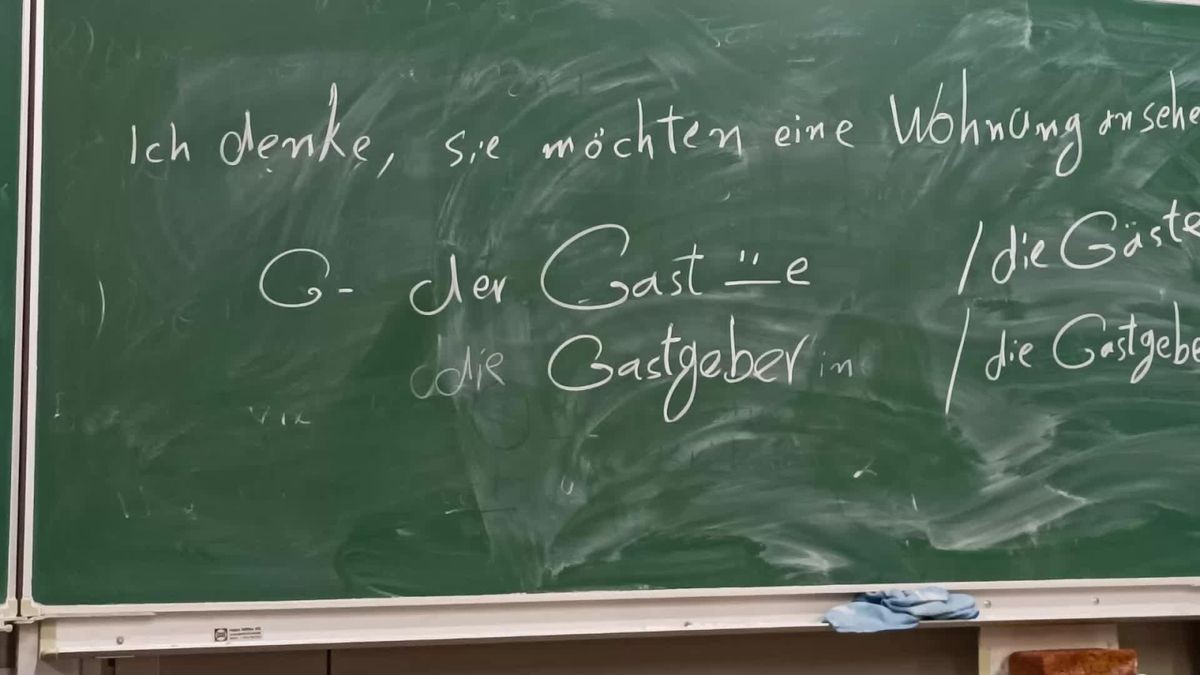 Ich denke, sie möchten eine Wohnung ansehe
G- der Gast ¨-e / die Gäste
die Gastgeberin / die Gastgebe